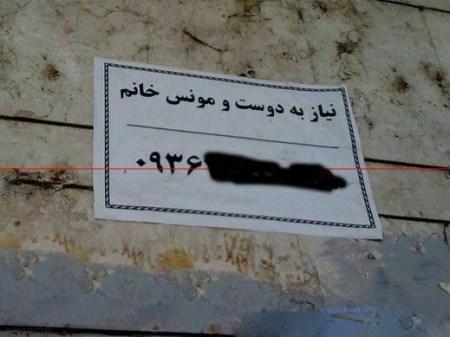 نیاز به دوست و مونس خانم
۰۹۳۶